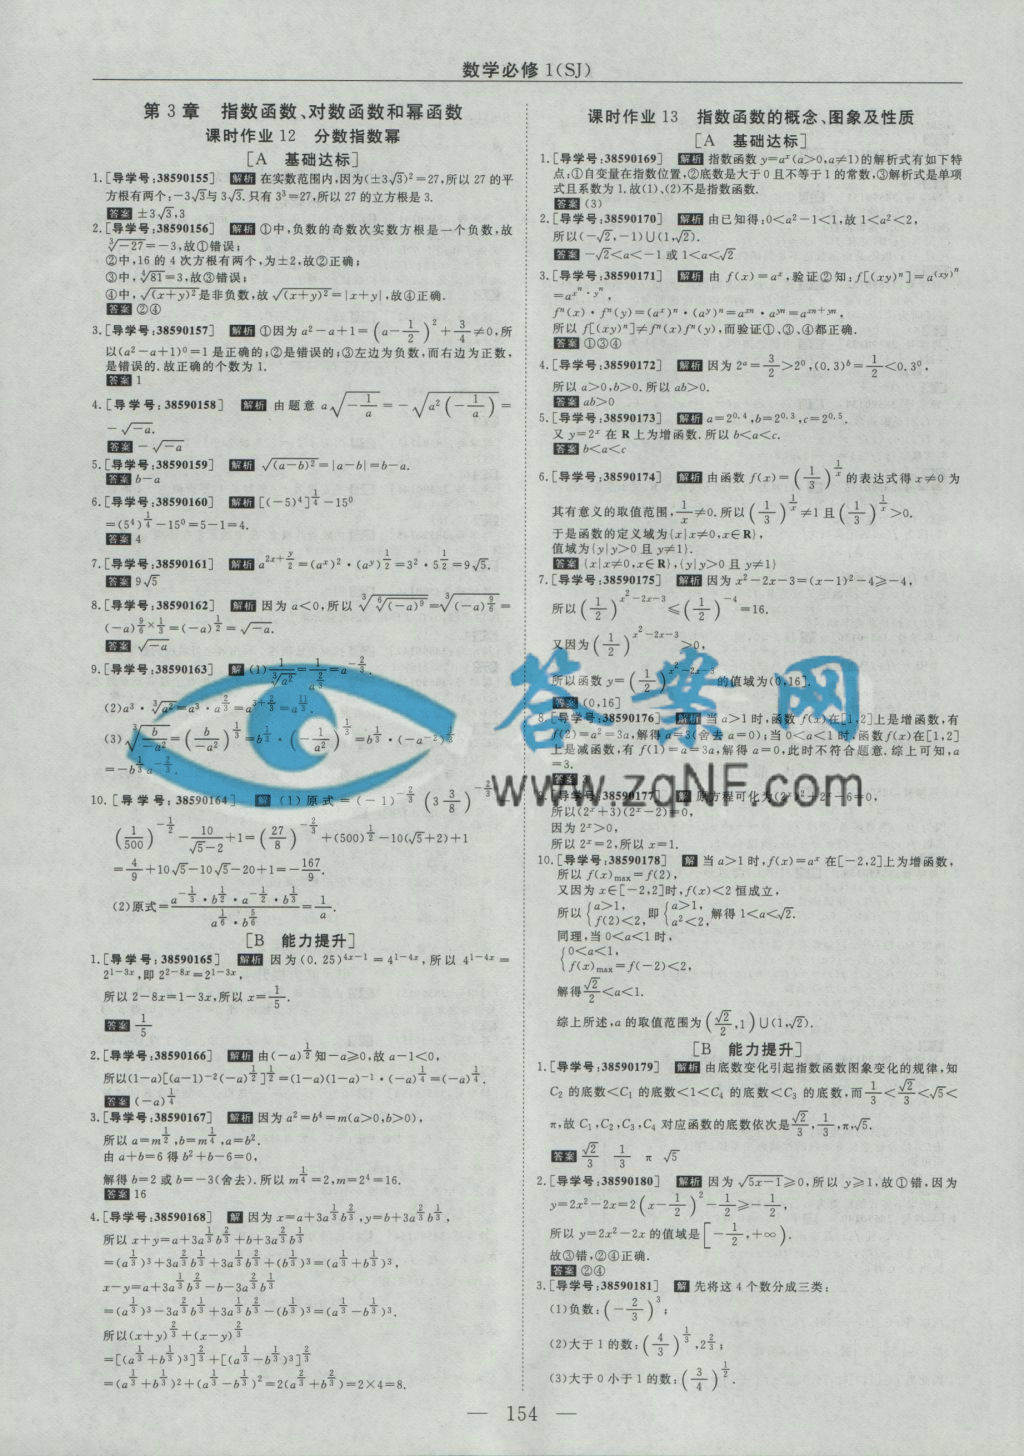 数学必修1(SJ)
第3章　指数函数、对数函数和幂函数
课时作业12　分数指数幂
[A　基础达标]
1.[导学号:38590155]　解析 在实数范围内,因为(±3√3)²=27,所以27的平
方根有两个,-3√3与3√3.只有3³=27,所以27的立方根是3.
答案 ±3√3,3
2.[导学号:38590156]　解析 ①中,负数的奇数次实数方根是一个负数,故
∛-27=-3,故①错误;
②中,16的4次方根有两个,为±2,故②正确;
③中,∜81=3,故③错误;
④中,√(x+y)²是非负数,故√(x+y)²=|x+y|,故④正确.
答案 ②④
3.[导学号:38590157]　解析 ①因为a²-a+1=(a-1/2)²+3/4≠0,所
以(a²-a+1)⁰=1是正确的;②是错误的;③左边为负数,而右边为正数,
是错误的.故正确的个数为1.
答案 1
4.[导学号:38590158]　解析 由题意a√(-1/a)=-√(a²(-1/a))=
-√-a.
答案 -√-a
5.[导学号:38590159]　解析 √(a-b)²=|a-b|=b-a.
答案 b-a
6.[导学号:38590160]　解析 [(-5)⁴]^(1/4)-15⁰
=(5⁴)^(1/4)-15⁰=5-1=4.
答案 4
7.[导学号:38590161]　解析 a^(2x+y/2)=(a^x)²·(a^y)^(1/2)=3²·5^(1/2)=9√5.
答案 9√5
8.[导学号:38590162]　解析 因为a<0,所以∛(⁶√(-a)⁹)=∛((-a)^(9/6))=
(-a)^(9/6×1/3)=(-a)^(1/2)=√-a.
答案 √-a
9.[导学号:38590163]　解 (1)1/∛a²=1/a^(2/3)=a^(-2/3).
(2)a³·∛a²=a³·a^(2/3)=a^(3+2/3)=a^(11/3).
(3)∛(b/-a²)=(b/-a²)^(1/3)=b^(1/3)·(-1/a²)^(1/3)=b^(1/3)·(-a^(-2))^(1/3)
=-b^(1/3)a^(-2/3).
10.[导学号:38590164]　解 (1)原式=(-1)^(-2/3)(3 3/8)^(-2/3)+
(1/500)^(-1/2)-10/(√5-2)+1=(27/8)^(-2/3)+(500)^(1/2)-10(√5+2)+1
=4/9+10√5-10√5-20+1=-167/9.
(2)原式=(a^(-1/3)·b^(1/2)·a^(-1/2)·b^(1/3))/(a^(1/6)·b^(5/6))=1/a.
[B　能力提升]
1.[导学号:38590165]　解析 因为(0.25)^(4x-1)=4^(1-4x),所以4^(1-4x)=
2^(1-3x),即2^(2-8x)=2^(1-3x),
所以2-8x=1-3x,所以x=1/5.
答案 1/5
2.[导学号:38590166]　解析 由(-a)^(1/2)知-a≥0,故a-1<0,
所以(1-a)[(a-1)^(-2)(-a)^(1/2)]^(1/2)=(1-a)(1-a)^(-1)·(-a)^(1/4)=(-a)^(1/4).
答案 (-a)^(1/4)
3.[导学号:38590167]　解析 因为a²=b⁴=m(a>0,b>0),
所以a=m^(1/2),b=m^(1/4),a=b².
由a+b=6得b²+b-6=0,
解得b=2或b=-3(舍去).所以m^(1/4)=2,m=2⁴=16.
答案 16
4.[导学号:38590168]　解 因为x=a+3a^(1/3)b^(2/3),y=b+3a^(2/3)b^(1/3),
所以x+y=a+3a^(1/3)b^(2/3)+b+3a^(2/3)b^(1/3)
=(a^(1/3))³+3a^(2/3)b^(1/3)+3a^(1/3)b^(2/3)+(b^(1/3))³=(a^(1/3)+b^(1/3))³,
x-y=a+3a^(1/3)b^(2/3)-b-3a^(2/3)b^(1/3)
=(a^(1/3))³-3a^(2/3)b^(1/3)+3a^(1/3)b^(2/3)-(b^(1/3))³=(a^(1/3)-b^(1/3))³.
所以(x+y)^(2/3)+(x-y)^(2/3)
=[(a^(1/3)+b^(1/3))³]^(2/3)+[(a^(1/3)-b^(1/3))³]^(2/3)
=(a^(1/3)+b^(1/3))²+(a^(1/3)-b^(1/3))²=2(a^(2/3)+b^(2/3))=2×4=8.
课时作业13　指数函数的概念、图象及性质
[A　基础达标]
1.[导学号:38590169]　解析 指数函数y=a^x(a>0,a≠1)的解析式有如下特
点:①自变量在指数位置,②底数是大于0且不等于1的常数,③解析式是单项
式且系数为1.故(1)、(2)不是指数函数.
答案 (3)
2.[导学号:38590170]　解析 由已知得:0<a²-1<1,故1<a²<2,
所以(-√2,-1)∪(1,√2).
答案 -√2<a<-1或1<a<√2
3.[导学号:38590171]　解析 由f(x)=a^x,验证②知:f[(xy)^n]=a^((xy)^n)
=a^(x^n·y^n),
f^n(x)·f^n(y)=(a^x)^n·(a^y)^n=a^(xn)·a^(yn)=a^(xn+yn),
所以f[(xy)^n]≠f^n(x)f^n(y),而验证①、③、④都正确.
答案 ①③④
4.[导学号:38590172]　解析 因为2^a=3/2>2⁰,(0.3)^b=1/2<0.3⁰,
所以a>0,b>0.所以ab>0.
答案 ab>0
5.[导学号:38590173]　解析 a=2^0.4,b=2^0.3,c=2^0.5.
又y=2^x在R上为增函数.所以b<a<c.
答案 b<a<c
6.[导学号:38590174]　解析 由函数f(x)=(1/3)^(1/x)的表达式得x≠0为
其有意义的取值范围,1/x≠0.所以(1/3)^(1/x)≠1且(1/3)^(1/x)>0.
于是函数的定义域为{x|x≠0,x∈R},
值域为{y|y>0且y≠1}.
答案 {x|x≠0,x∈R},{y|y>0且y≠1}
7.[导学号:38590175]　解析 因为x²-2x-3=(x-1)²-4≥-4,
所以(1/2)^(x²-2x-3)≤(1/2)^(-4)=16.
又因为(1/2)^(x²-2x-3)>0,
所以函数y=(1/2)^(x²-2x-3)的值域为(0,16].
答案 (0,16]
8.[导学号:38590176]　解析 当a>1时,函数f(x)在[1,2]上是增函数,有
f(2)=a²=3a,解得a=3(舍去a=0);当0<a<1时,函数f(x)在[1,2]
上是减函数,有f(1)=a=3a,解得a=0,此时不符合题意.综上可知,a
=3.
答案 3
9.[导学号:38590177]　解 原方程可化为(2^x)²+2^x-6=0,
所以(2^x+3)(2^x-2)=0,
因为2^x>0,
所以2^x=2,所以x=1.
10.[导学号:38590178]　解 当a>1时,f(x)=a^x在[-2,2]上为增函数,
所以f(x)max=f(2),
又因为x∈[-2,2]时,f(x)<2恒成立,
所以{a>1,f(2)<2,即{a>1,a²<2,解得1<a<√2.
同理,当0<a<1时,
{0<a<1,
f(x)max=f(-2)<2,
解得√2/2<a<1.
综上所述,a的取值范围为(√2/2,1)∪(1,√2).
[B　能力提升]
1.[导学号:38590179]　解析 由底数变化引起指数函数图象变化的规律,知
C₂的底数<C₁的底数<1<C₄的底数<C₃的底数,而1/3<√2/3<√5<
π,故C₁,C₂,C₃,C₄对应函数的底数依次是√2/3,1/3,π,√5.
答案 √2/3　1/3　π　√5
2.[导学号:38590180]　解析 因为√5x-1≥0,所以y≥1,故①错,因为
y=2x²-2x=2(x-1/2)²-1/2≥-1/2,
所以y=2x²-2x的值域是[-1/2,+∞).
故③错,②④正确.
答案 ②④
3.[导学号:38590181]　解 先将这4个数分成三类:
(1)负数:(-2/3)³;
(2)大于1的数:(4/3)^(1/3),2^(2/3);
(3)大于0小于1的数:(3/4)^(1/2).
— 154 —
答案网
www.zqNF.com